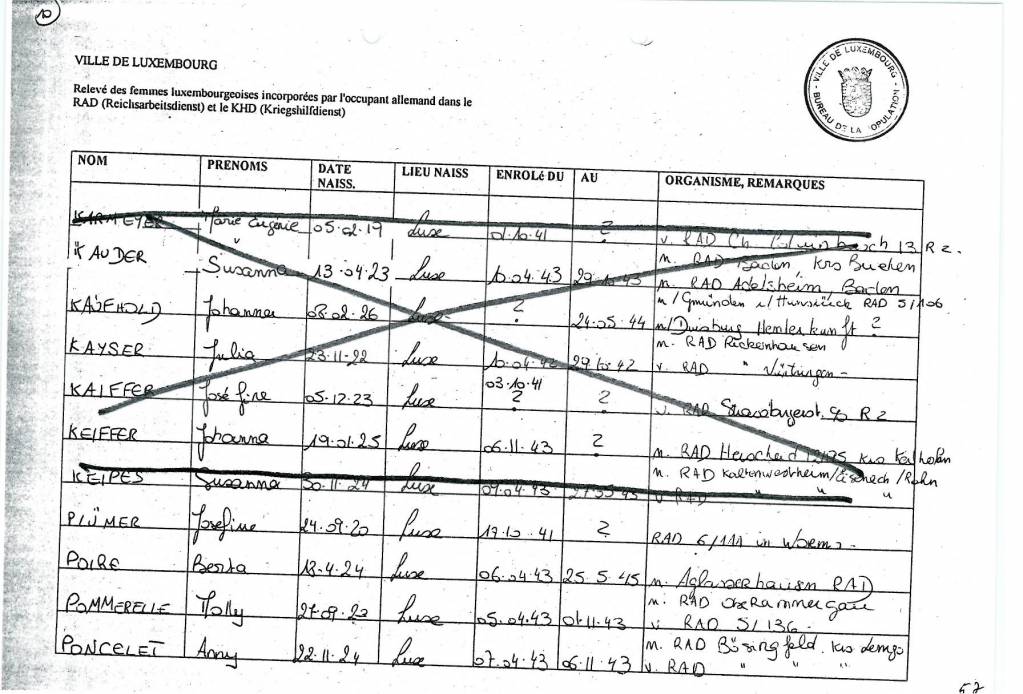 10
VILLE DE LUXEMBOURG
Relevé des femmes luxembourgeoises incorporées par l'occupant allemand dans le
RAD (Reichsarbeitsdienst) et le KHD (Kriegshilfdienst)
VILLE DE LUXEMBOURG
BUREAU DE LA POPULATION
NOM PRENOMS DATE NAISS. LIEU NAISS ENROLÉ DU AU ORGANISME, REMARQUES
KARMEYER Marie Eugénie 05.02.19 Luxe 01.10.41 ? v. RAD 13 R 2.
KAUDER Susanna 13.04.23 Luxe 10.04.43 29.10.43 n. RAD Baden, krs Buchen
n. RAD Adelsheim, Baden
KAUFHOLD Johanna 08.02.26 Luxe ? 24.05.44 n/Gmünden i/Hunsrück RAD 5/106
n/Duisburg ?
KAYSER Julia 23.11.22 Luxe 10.04.42 29.10.42 n. RAD Rickenhausen
v. RAD " Nürtingen -
KAIFFER Joséfine 05.12.23 Luxe 03.10.41 ? ? v. RAD R 2
KEIFFER Johanna 19.01.25 Luxe 06.11.43 ? n. RAD krs
KEIPES Susanna 30.11.24 Luxe n. RAD Kaltenwestheim/Eisenach/Röhn
v. RAD " " "
PLÜMER Josefine 24.09.20 Luxe 17.10.41 ? RAD 6/111 in Worms -
POIRE Berta 18.4.24 Luxe 06.04.43 25.5.45 n. Aglasterhausen RAD
POMMERELLE Molly 27.09.20 Luxe 05.04.43 01.11.43 n. RAD Oberammergau
v. RAD 5/136 -
PONCELET Anny 22.11.24 Luxe 07.04.43 06.11.43 n. RAD Bösingfeld krs Lemgo
v. RAD " " "
57